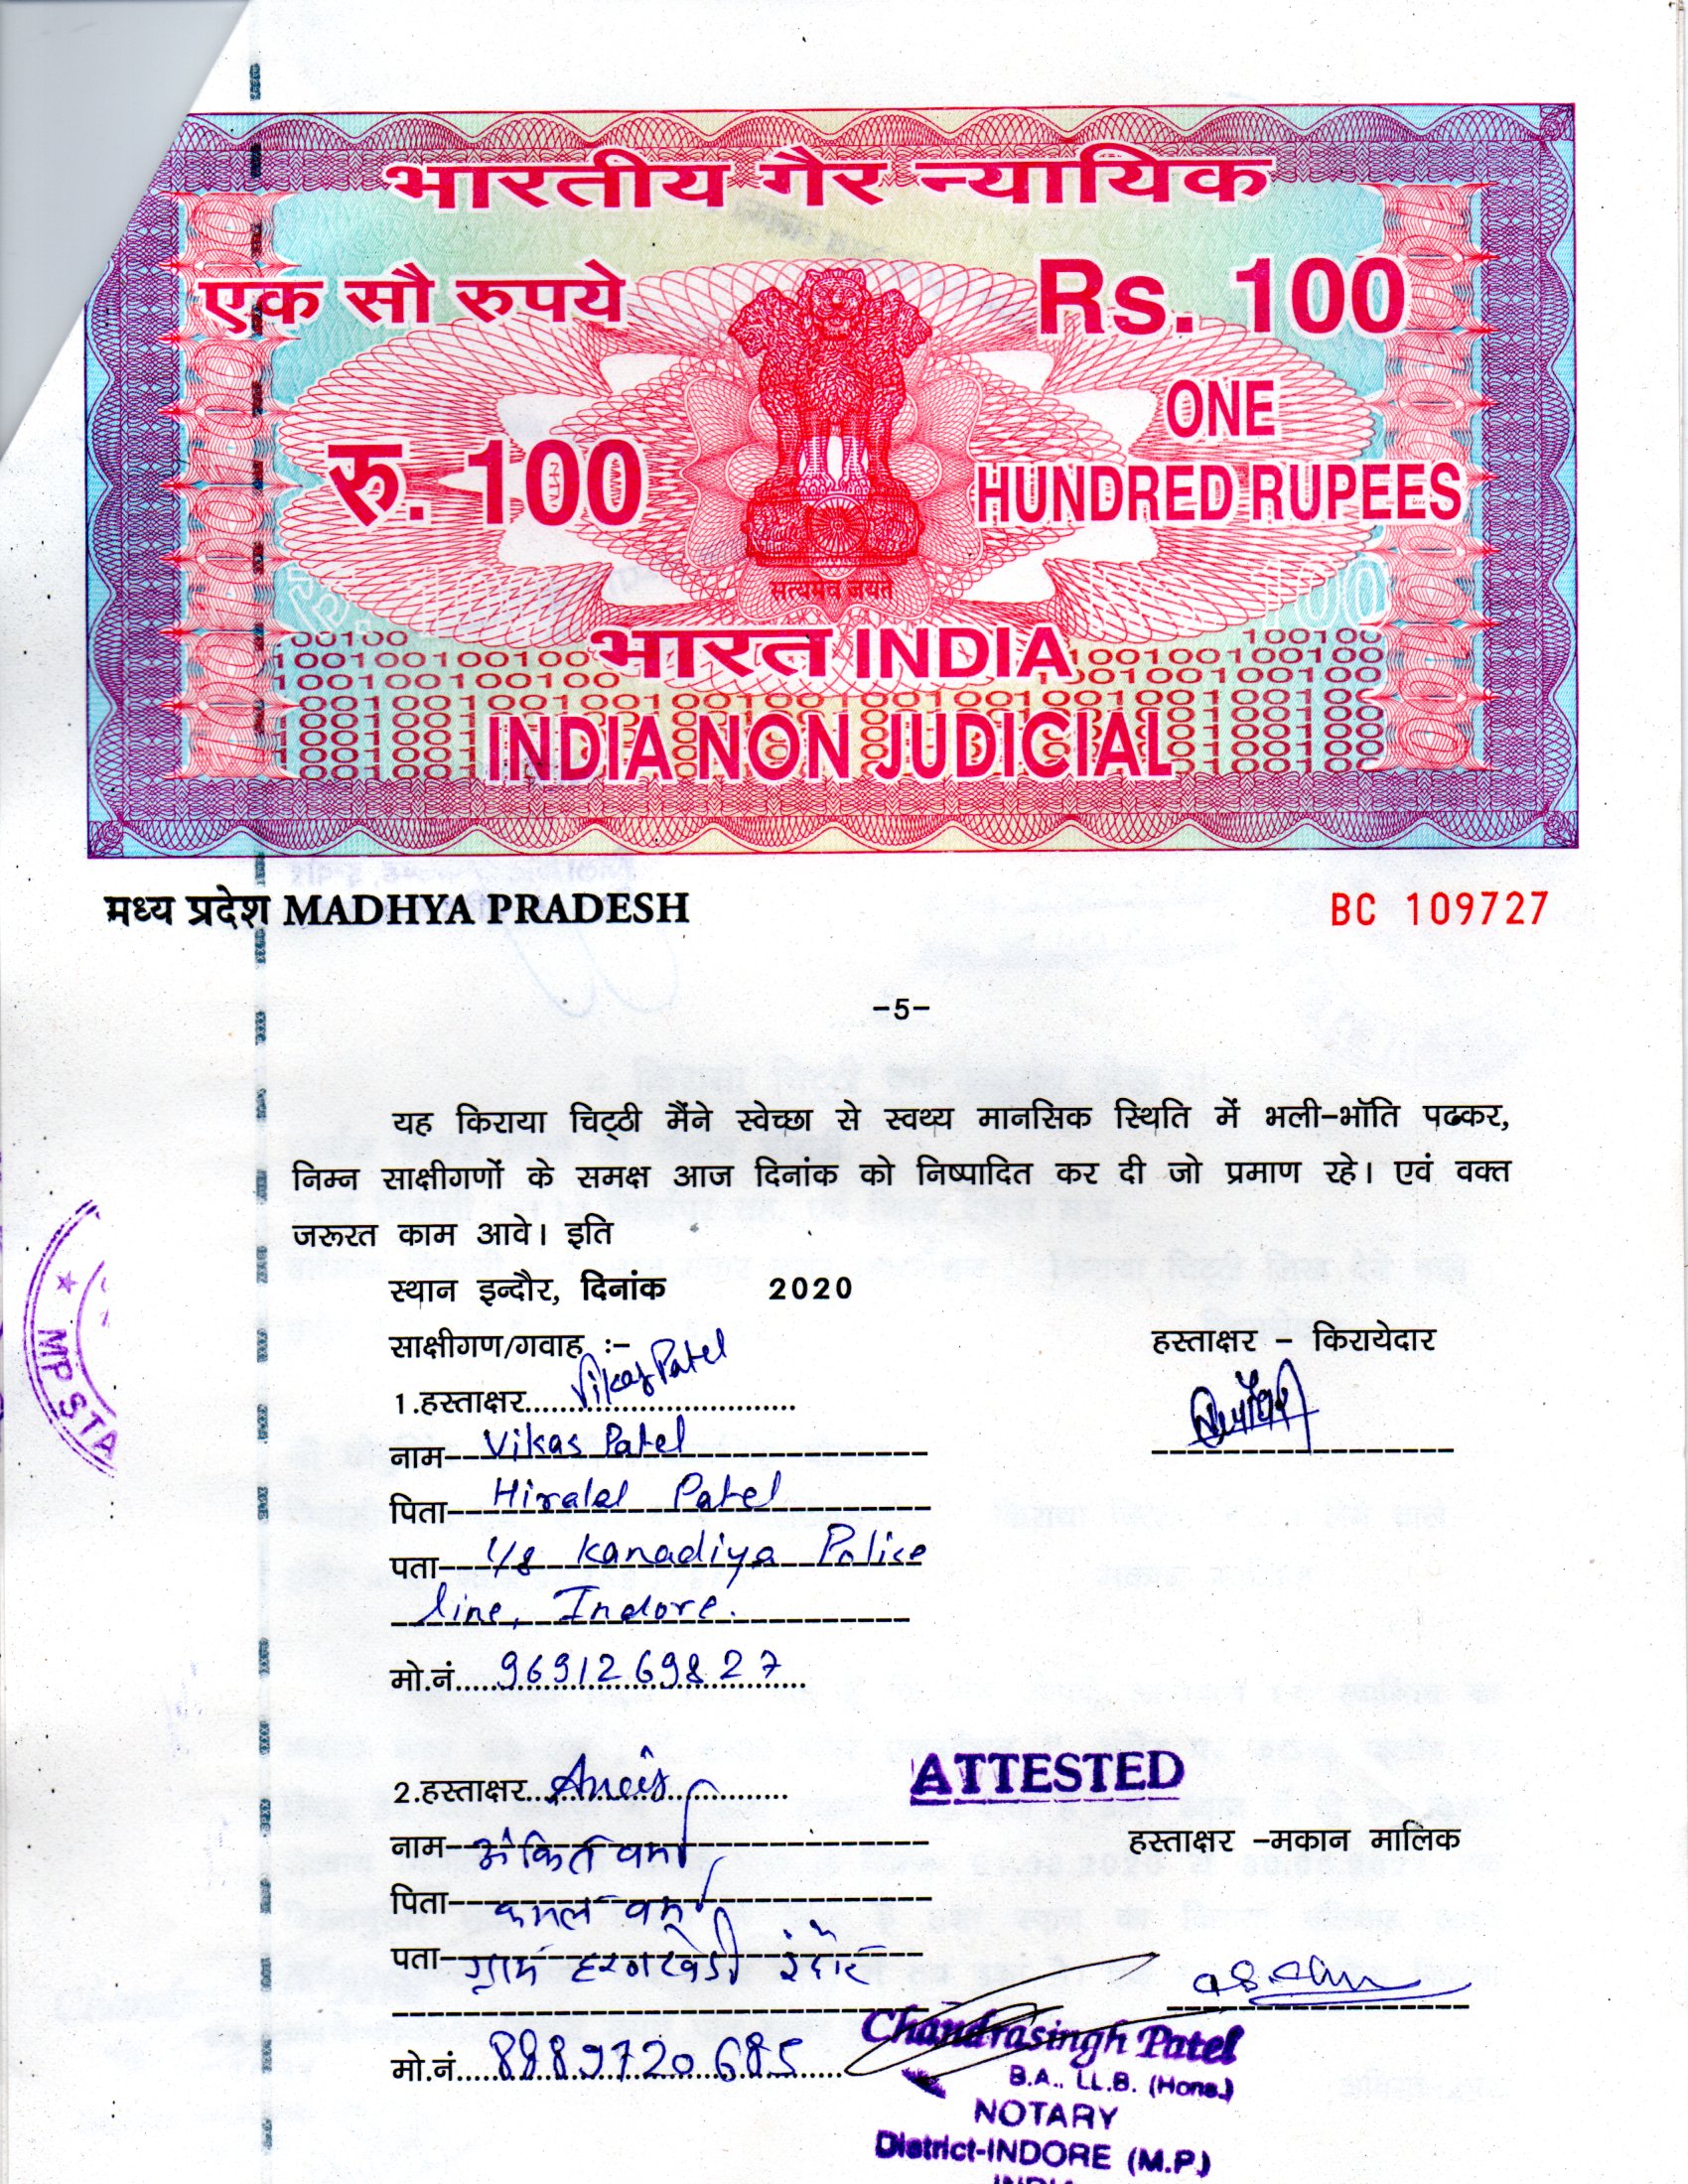 भारतीय गैर न्यायिक
एक सौ रुपये
Rs. 100
रु. 100
ONE
HUNDRED RUPEES
सत्यमेव जयते
भारत INDIA
INDIA NON JUDICIAL
मध्य प्रदेश MADHYA PRADESH
BC 109727
-5-
यह किराया चिट्ठी मैंने स्वेच्छा से स्वथ्य मानसिक स्थिति में भली-भॉति पढकर,
निम्न साक्षीगणों के समक्ष आज दिनांक को निष्पादित कर दी जो प्रमाण रहे। एवं वक्त
जरूरत काम आवे। इति
स्थान इन्दौर, दिनांक 2020
साक्षीगण/गवाह :-
हस्ताक्षर - किरायेदार
1.हस्ताक्षर Vikas Patel
नाम Vikas Patel
पिता Hiralal Patel
पता 1/8 Kanadiya Police
line, Indore.
मो.नं. 9691269827
MP STA
ATTESTED
2.हस्ताक्षर
नाम अंकित वर्मा
हस्ताक्षर -मकान मालिक
पिता कमल वर्मा
पता ग्राम इंदौर
मो.नं. 8889720685
Chandrasingh Patel
B.A., LL.B. (Hons.)
NOTARY
District-INDORE (M.P.)
INDIA